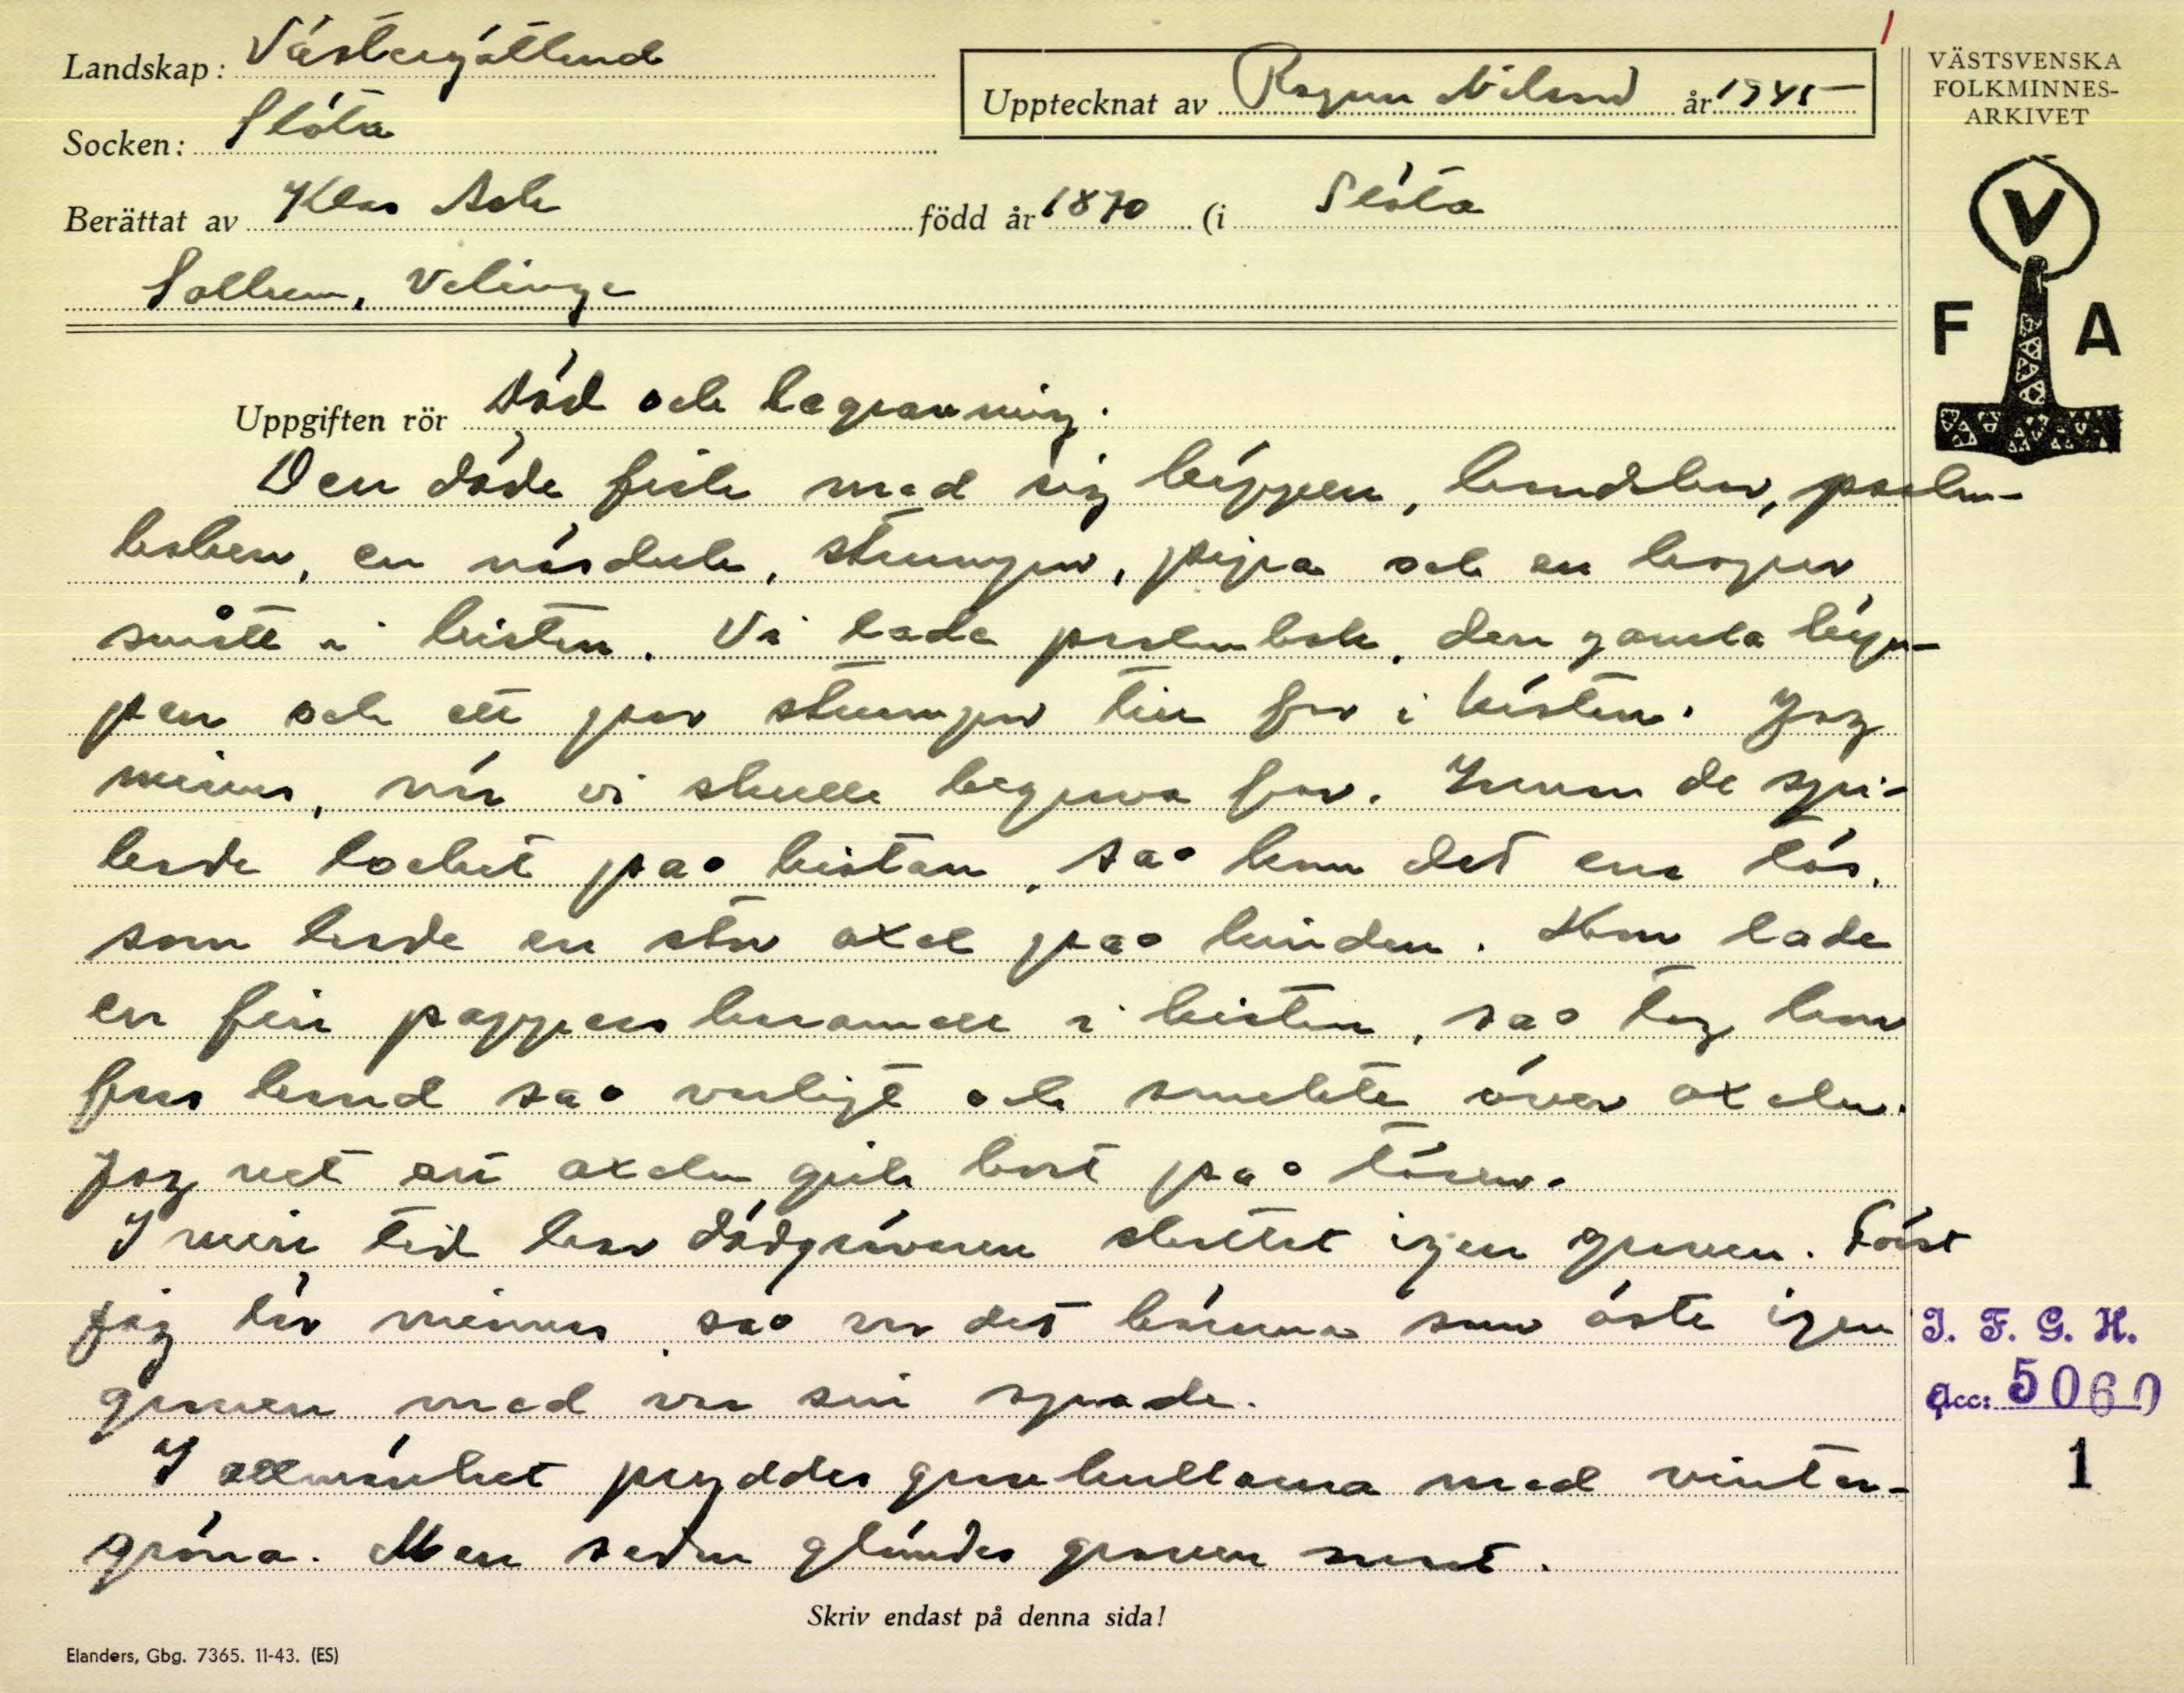 Landskap: Västergötland
Socken: Slöta
Upptecknat av Ragnar Nilsson år 1945
Berättat av Klas Ask född år 1870 (i Slöta
Solhem, Velinga
VÄSTSVENSKA
FOLKMINNES-
ARKIVET
V
F A
Uppgiften rör Död och begravning.
Den döde fick med sig käppen, handskar, psalm-
boken, en näsduk, strumpor, pipa och en kagge
smått i kistan. Vi lade psalmbok, den gamla käp-
pen och ett par strumpor till far i kistan. Jag
minns, när vi skulle begrava far. Innan de spi-
kade locket på kistan, så kom det en tös,
som hade en stor axel på kinden. Hon lade
en fin papperskaramell i kistan, så tog hon
fars hand så varligt och smekte över axeln.
Jag vet att axeln gick bort på tösen.
I min tid har dödgrävaren skottat igen graven. Först
jag kan minnas, så var det bönderna som öste igen
graven med var sin spade.
I allmänhet pryddes gravkullarna med vinter-
gröna. Men sedan glömdes graven snart.
I. F. G. H.
Acc: 5060
1
Skriv endast på denna sida!
Elanders, Gbg. 7365. 11-43. (ES)